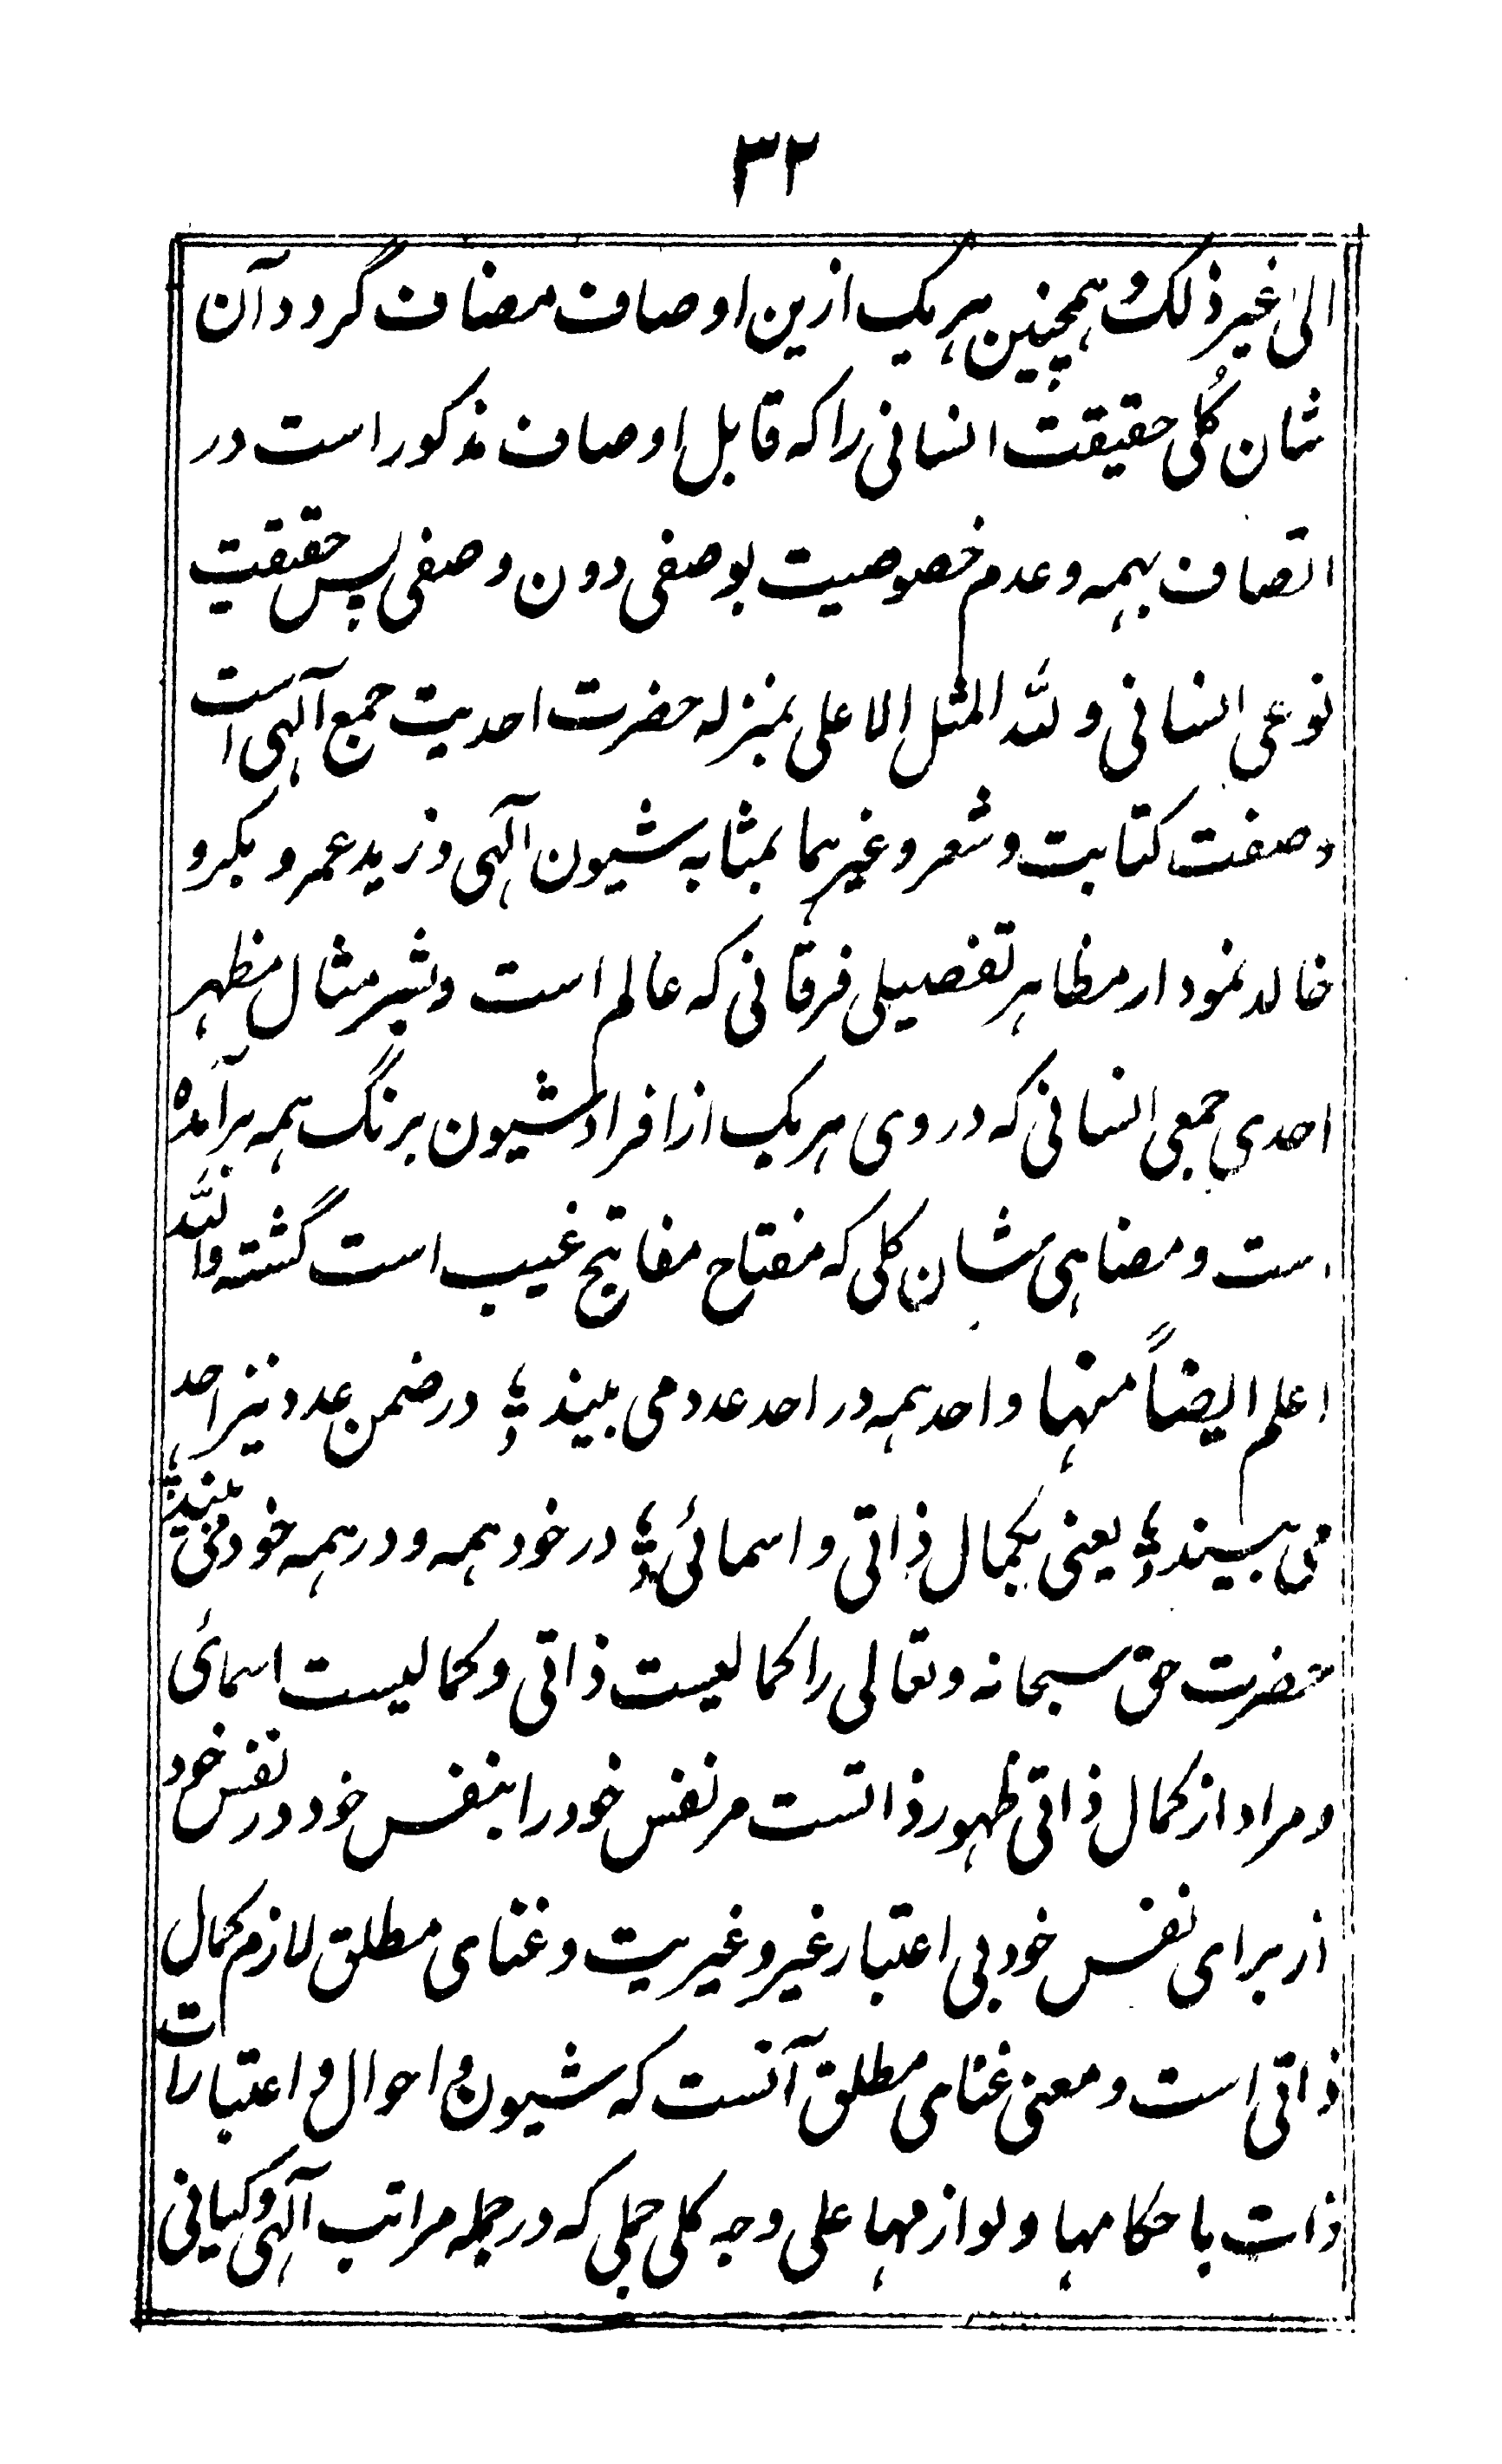 ۳۲
الی غیر ذلک و ہمچنین ہر یک ازین اوصاف مضاف گردد آن
شان کُلی حقیقت انسانی را کہ قابل اوصاف مذکور است در
اتصاف بہمہ و عدم خصوصیت بوصفی دون وصفی پس حقیقت
نوعی انسانی و للّٰہ المثل الاعلی بمنزلہ حضرت احدیت جمع آلہی است
و صفت کتابت و شعر و غیرہما بمثابہ شیون الٓہی و زید عمرو و بکر و
خالد نمودار مظاہر تفصیلی فرقانی کہ عالم است و بشیر مثال مظہر
احدی جمعی انسانی کہ در وی ہر یک از افراد شیون برنگ ہمہ برآمدہ
است و مضاہی شان کلی کہ مفتاح مفاتیح غیب است گشتہ واللّٰہ
اعلم ایضاً منہا واحد ہمہ در احد عدد می بیند ؛ در ضمن عدد نیز احد
می بیند ؛ یعنی بکمال ذاتی و اسمائی ؛ در خود ہمہ و در ہمہ خود می بیند ؛
حضرت حق سبحانہ و تعالی را کمالیست ذاتی و کمالیست اسمائی
و مراد از کمال ذاتی ظہور ذاتست مر نفس خود را بنفس خود در نفس خود
از برای نفس خود بی اعتبار غیر و غیریت و غنای مطلق لازم کمال
ذاتی است و معنی غنای مطلق آنست کہ شیون و احوال و اعتبارات
ذات باحکامہا و لوازمہا علی وجہ کلی جملی کہ در جملہ مراتب آلٓہی و کیانی